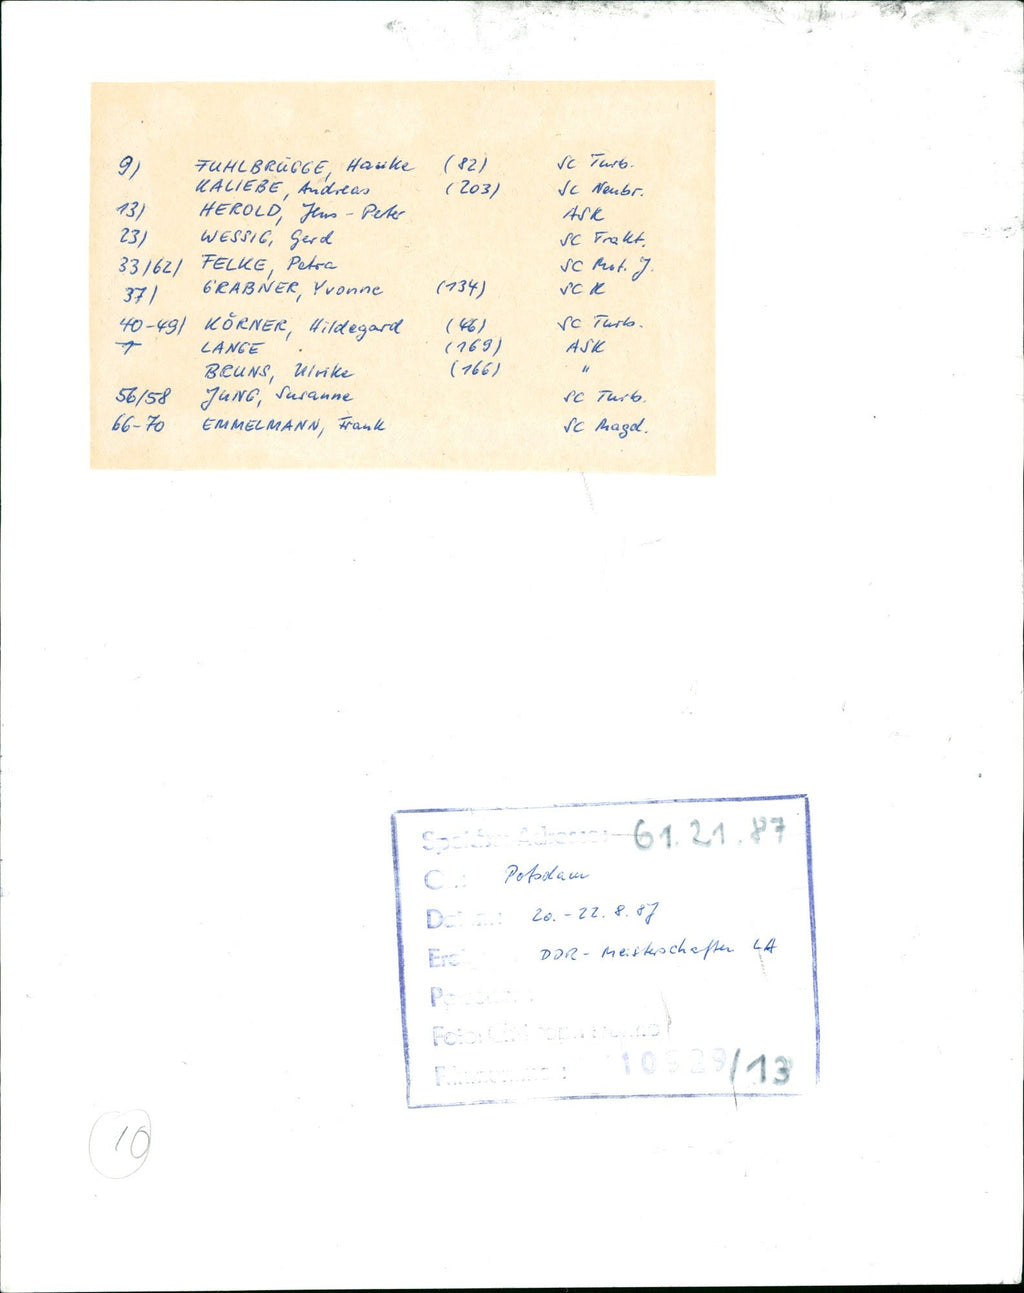 9) FUHLBRÜGGE, Hauke (82) SC Turb.
KALIEBE, Andreas (203) SC Neubr.
13) HEROLD, Jens-Peter ASK
23) WESSIG, Gerd SC Trakt.
33/62/ FELKE, Petra SC Mot. J.
37) GRABNER, Yvonne (134) SC K
40-49) KÖRNER, Hildegard (46) SC Turb.
↑ LANGE (169) ASK
BRUNS, Ulrike (166) "
56/58 JUNG, Susanne SC Turb.
66-70 EMMELMANN, Frank SC Magd.
61.21.87
Potsdam
20.-22.8.87
DDR-Meisterschaften LA
/13
10